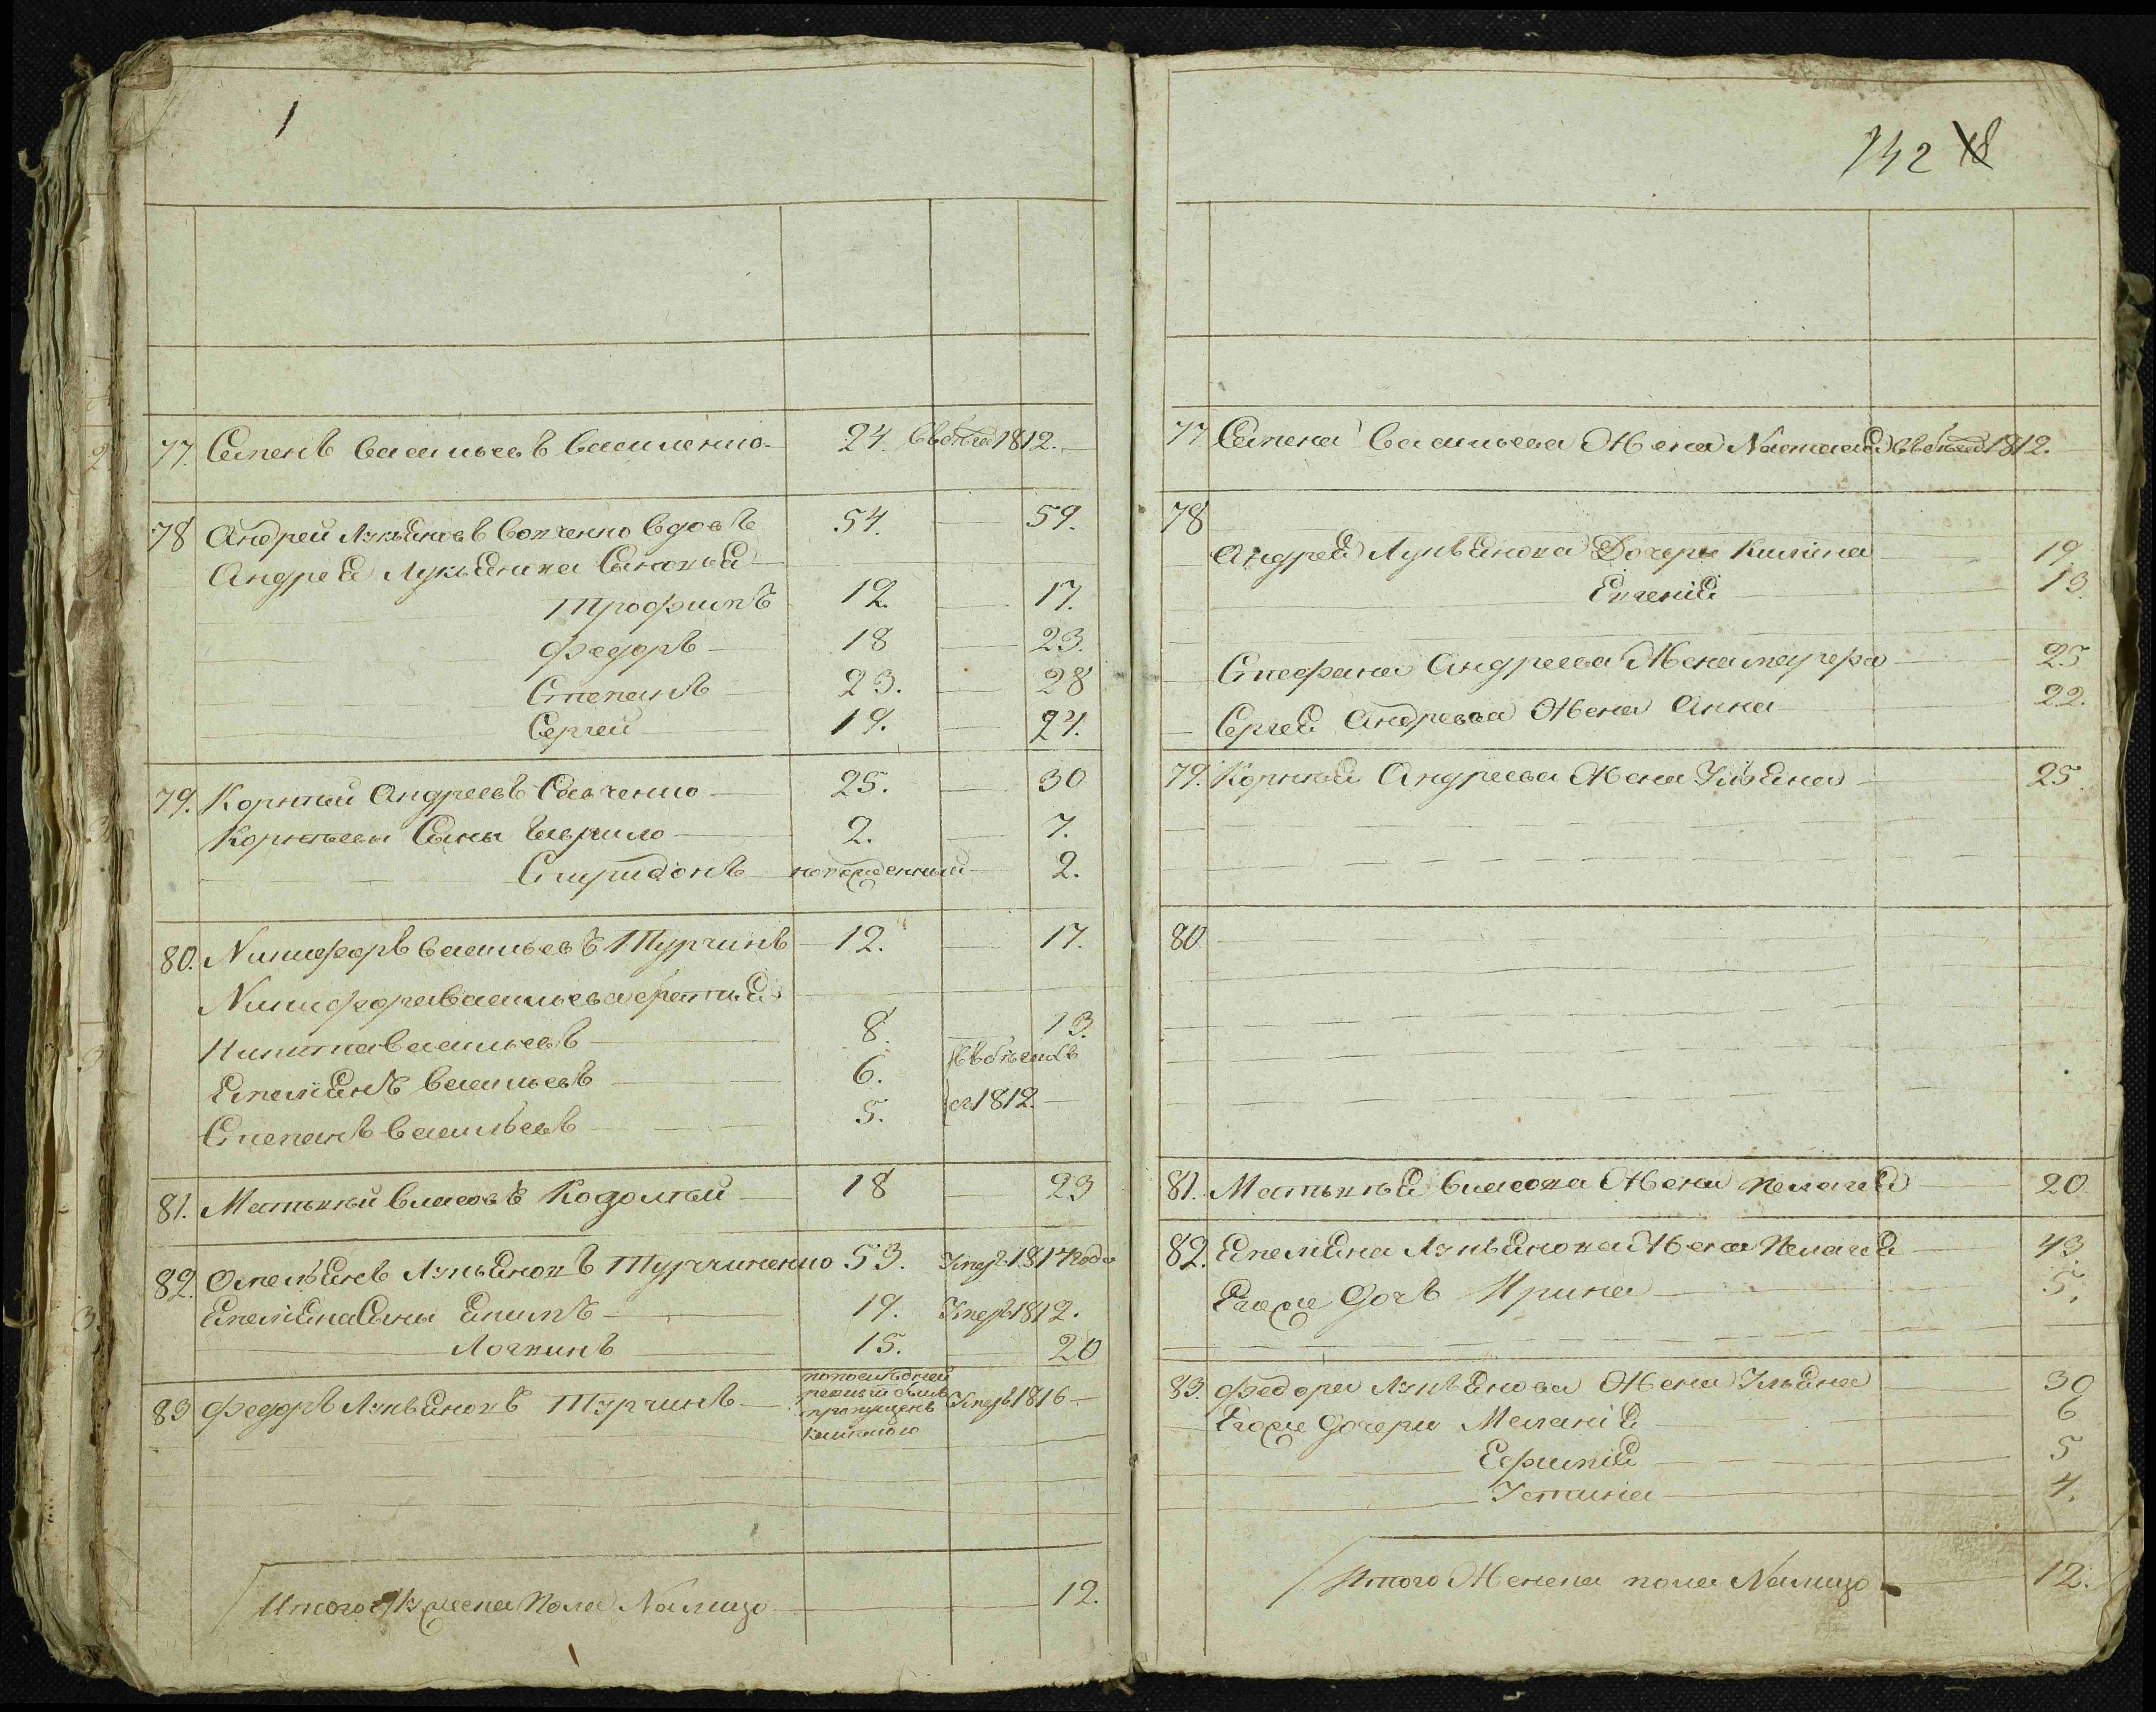 1
77. Семенъ Васильевъ Василенко 24. въ бегах 1812.
78 Андрей Лукьяновъ Вовченко вдовъ 54. 59.
Андрея Лукьянова Сыновья
Трофимъ 12. 17.
Федоръ 18 23.
Степанъ 23. 28
Сергей 19. 24.
79. Корнѣй Андреевъ Савченко 25. 30
Корнѣевы Сыны Гаврило 2. 7.
Спиридонъ новорожденный 2.
80. Никифоръ Васильевъ Турчинъ 12. 17.
Никифора Васильева братья
Никита Васильевъ 8. 13.
Емельянъ Васильевъ 6. въ бегахъ
Степанъ Васильевъ 5. съ 1812.
81. Матвѣй Власовъ 18 23
82. Омельянъ Лукьяновъ Турчиненко 53. Умеръ 1817 года
Емельяна Сыны Екимъ 19. Умеръ 1812.
Логвинъ 15. 20
83 Федоръ Лукьяновъ Турчинъ по последней ревизии былъ пропущенъ Умеръ 1816
Итого Мужеска пола Налицо 12.
142 18
77 Семена Васильева Жена Настасья въ бегах 1812.
78
Андрея Лукьянова Дочери Килина 19.
Евгенія 13.
Стефана Андреева Жена 25
Сергея Андреева Жена Анна 22.
79. Корнѣя Андреева Жена Ульяна 25.
80
81. Матвѣя Власова Жена Пелагея 20
82. Емельяна Лукьянова Жена Пелагея 43.
Его же Дочь Ирина 5.
83. Федора Лукьянова Жена Ульяна 30
Его же Дочери Меланія 6
Ефимія 5
Устинья 4.
Итого Женска пола Налицо 12.